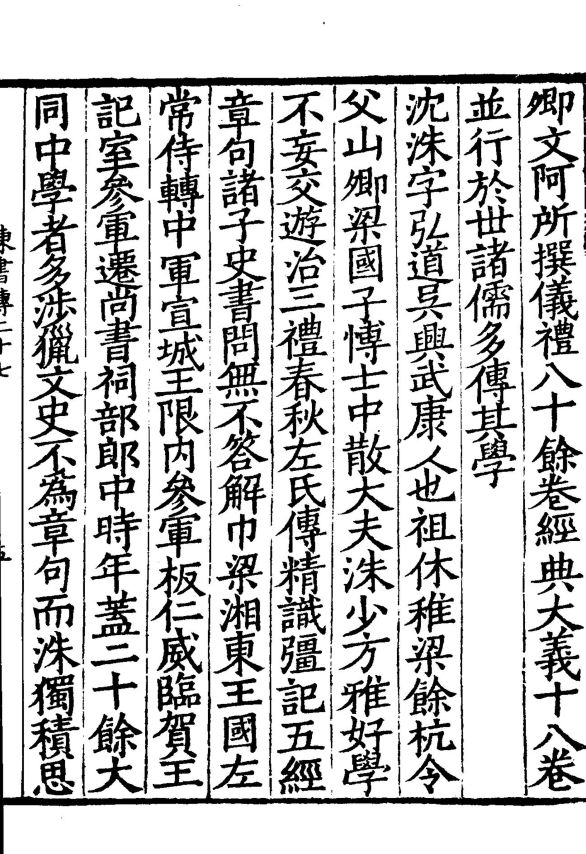 卿文阿所撰儀禮八十餘卷經典大義十八卷
並行於世諸儒多傳其學
沈洙字弘道吳興武康人也祖休稚梁餘杭令
父山卿梁國子博士中散大夫洙少方雅好學
不妄交遊治三禮春秋左氏傳精識彊記五經
章句諸子史書問無不答解巾梁湘東王國左
常侍轉中軍宣城王限內參軍板仁威臨賀王
記室參軍遷尚書祠部郎中時年蓋二十餘大
同中學者多涉獵文史不為章句而洙獨積思
陳書傳二十七
五